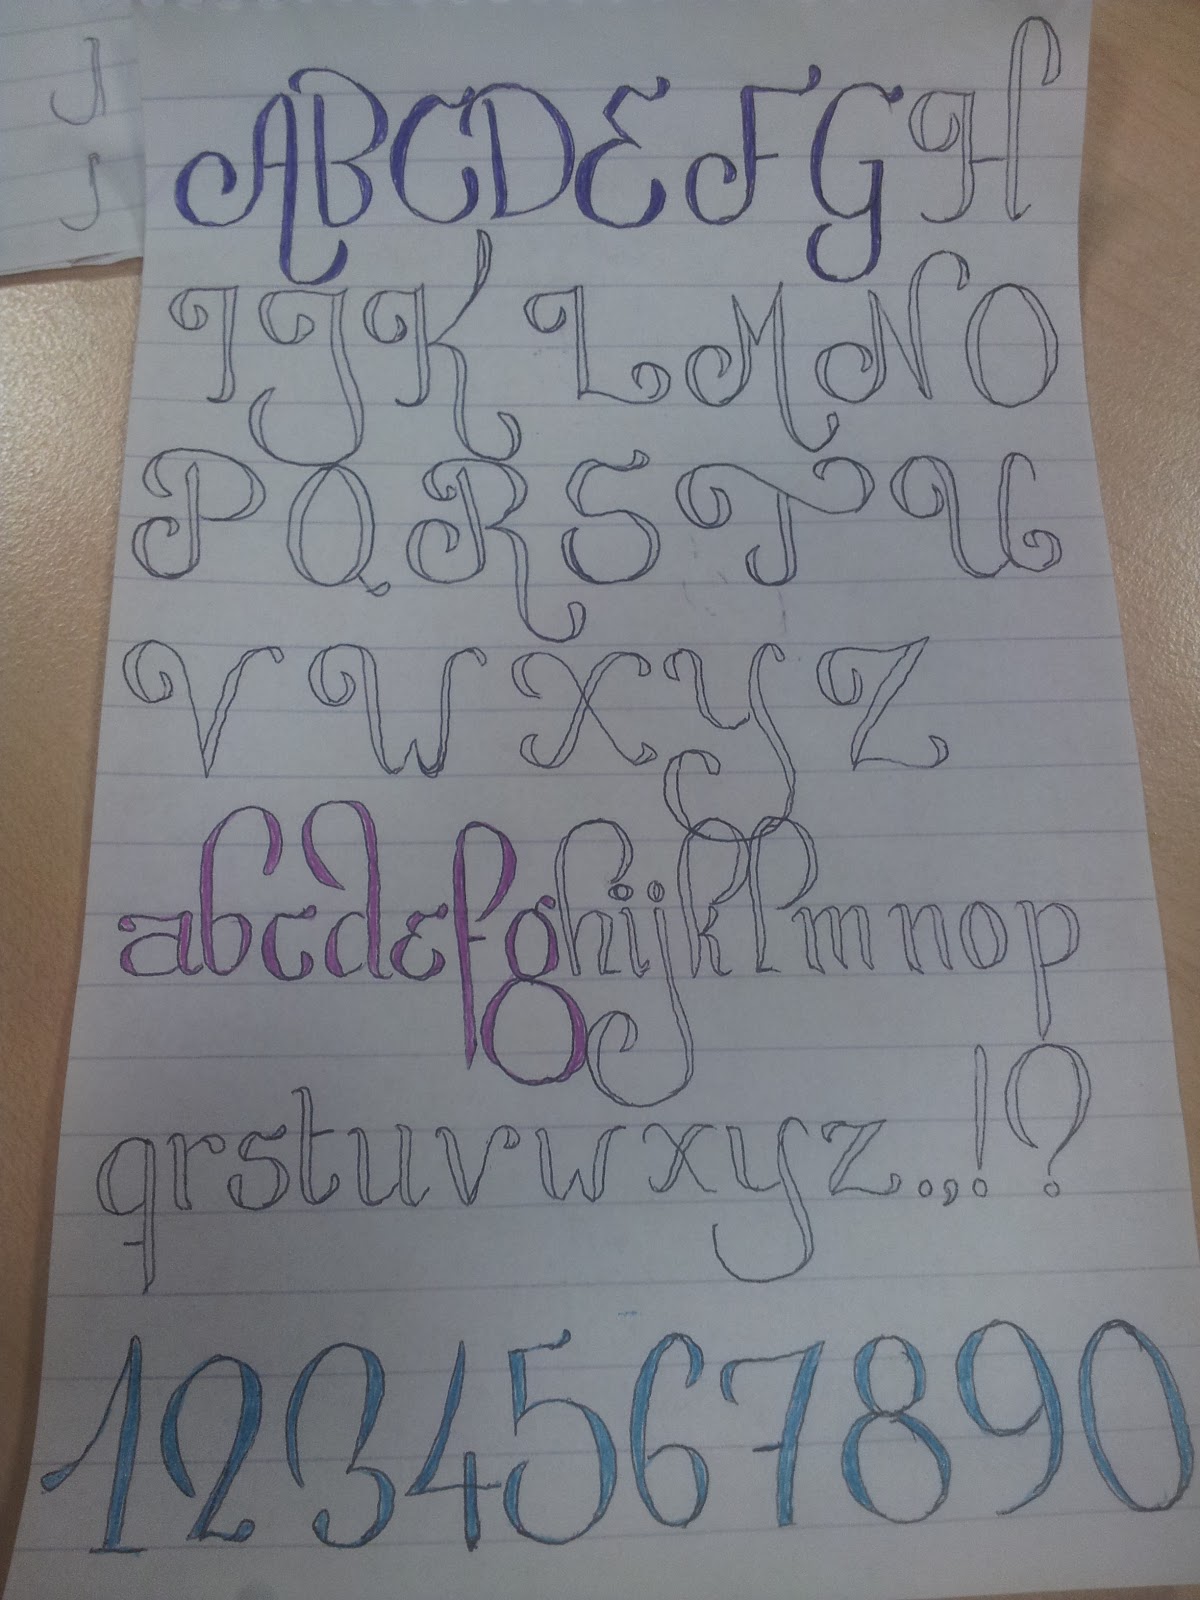 ABCDEFGH
IJKLMNO
PQRSTU
VWXYZ
abcdefghijklmnop
qrstuvwxyz.,!?
1234567890